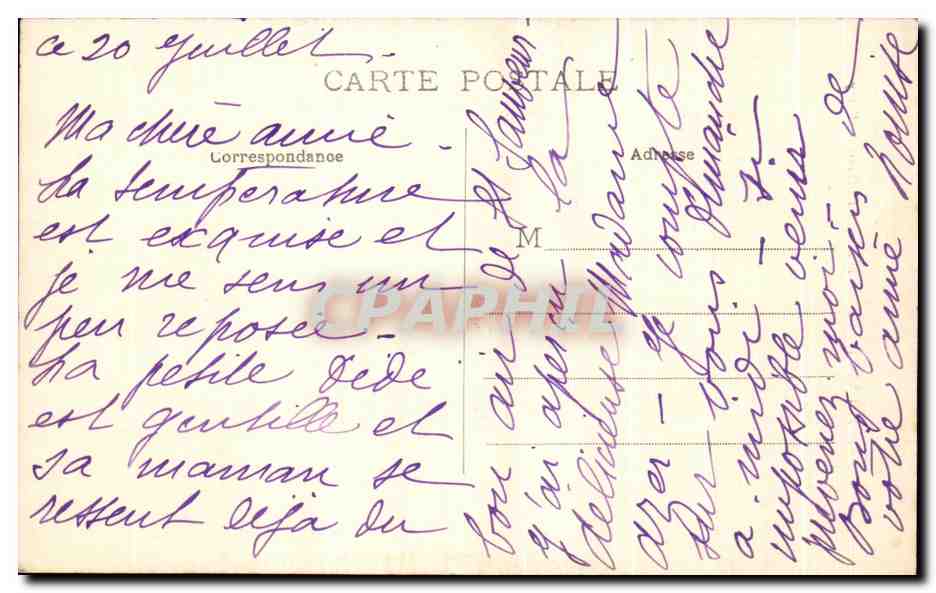 ce 20 Juillet -
CARTE POSTALE
Correspondance
Adresse
M
Ma chère amie -
La temperature
est exquise et
je me sens un
peu reposée -
La petite Dédé
est gentille et
sa maman se
ressent déjà du
bon air de St Sauveur
J'ai aperçu la
délicieuse Madame
- Je compte
sur vous dimanche
a midi - Si
impossible venir
prévenez moi -
Bons baisers de
votre amie
CPAPHIL